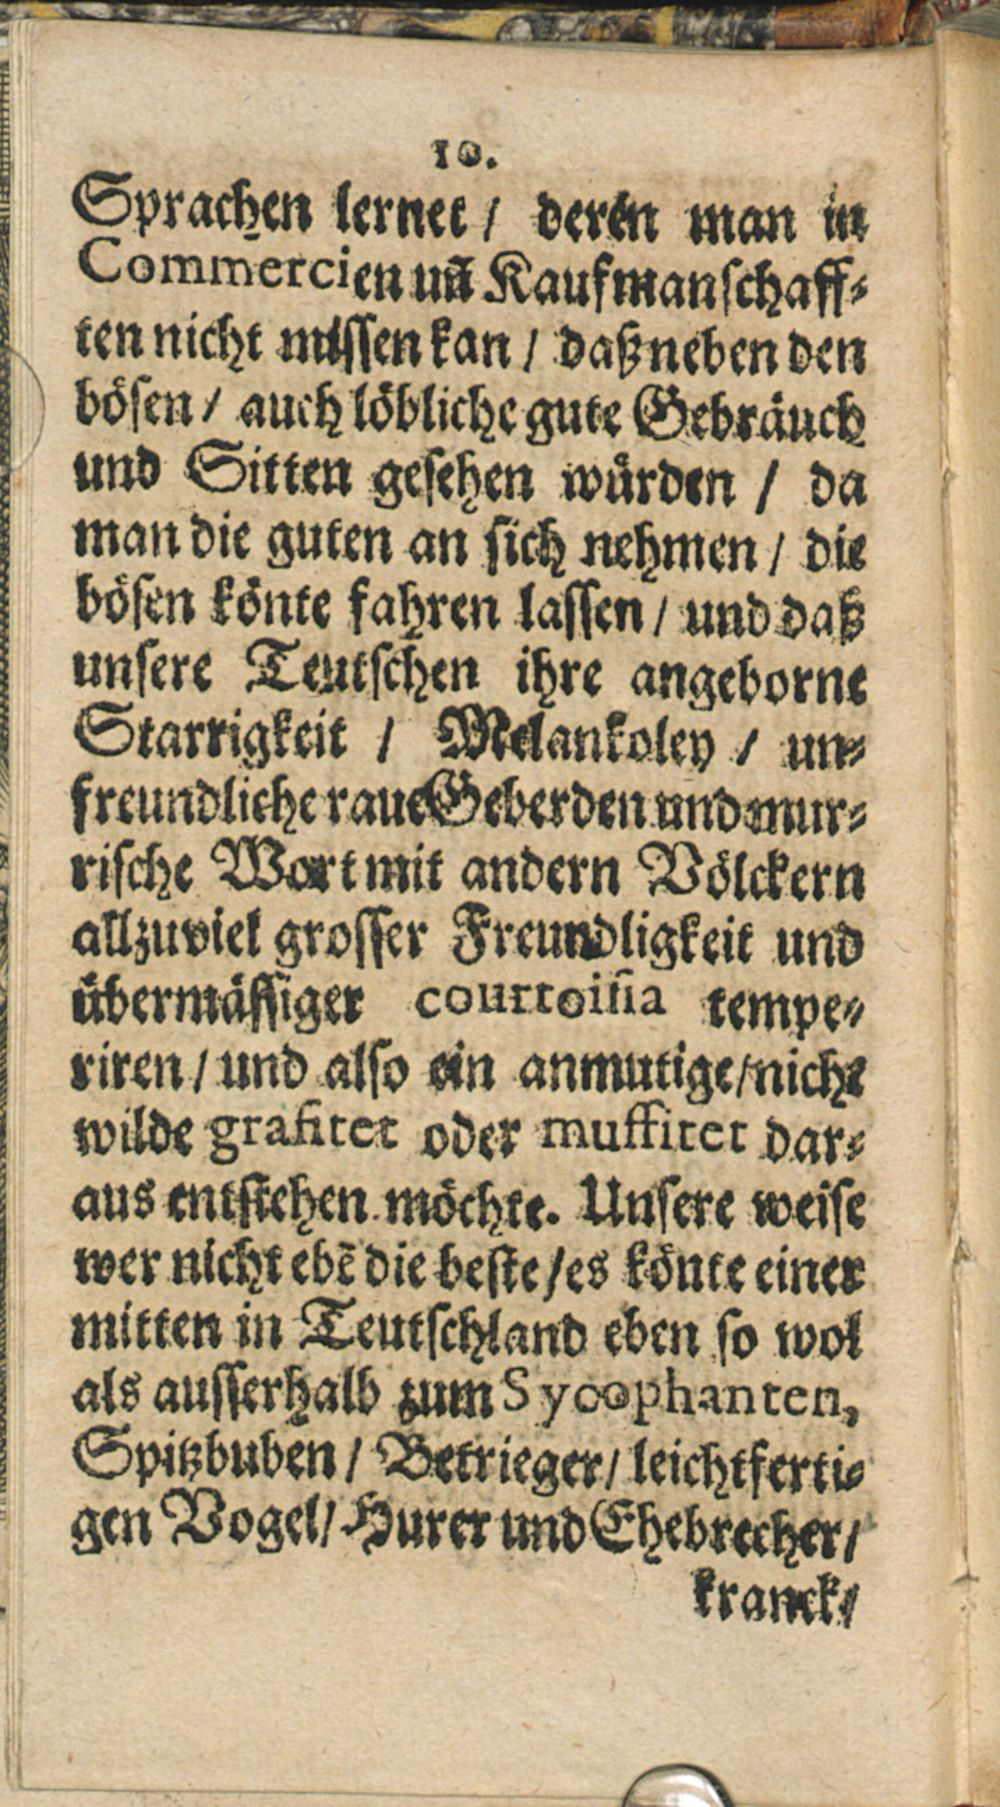 10.
Sprachen lernet / deren man in
Commercien uñ Kaufmanschaff-
ten nicht missen kan / daß neben den
bösen / auch löbliche gute Gebräuch
und Sitten gesehen würden / da
man die guten an sich nehmen / die
bösen könte fahren lassen / und daß
unsere Teutschen ihre angeborne
Starrigkeit / Melankoley / un-
freundliche raue Geberden und mur-
rische Wort mit andern Völckern
allzuviel grosser Freundligkeit und
übermässiger courtoisia tempe-
riren / und also ein anmutige / nicht
wilde grafitet oder muffitet dar-
aus entstehen möchte. Unsere weise
wer nicht ebē die beste / es könte einer
mitten in Teutschland eben so wol
als ausserhalb zum Sycophanten,
Spitzbuben / Betrieger / leichtferti-
gen Vogel / Hurer und Ehebrecher /
kranck /